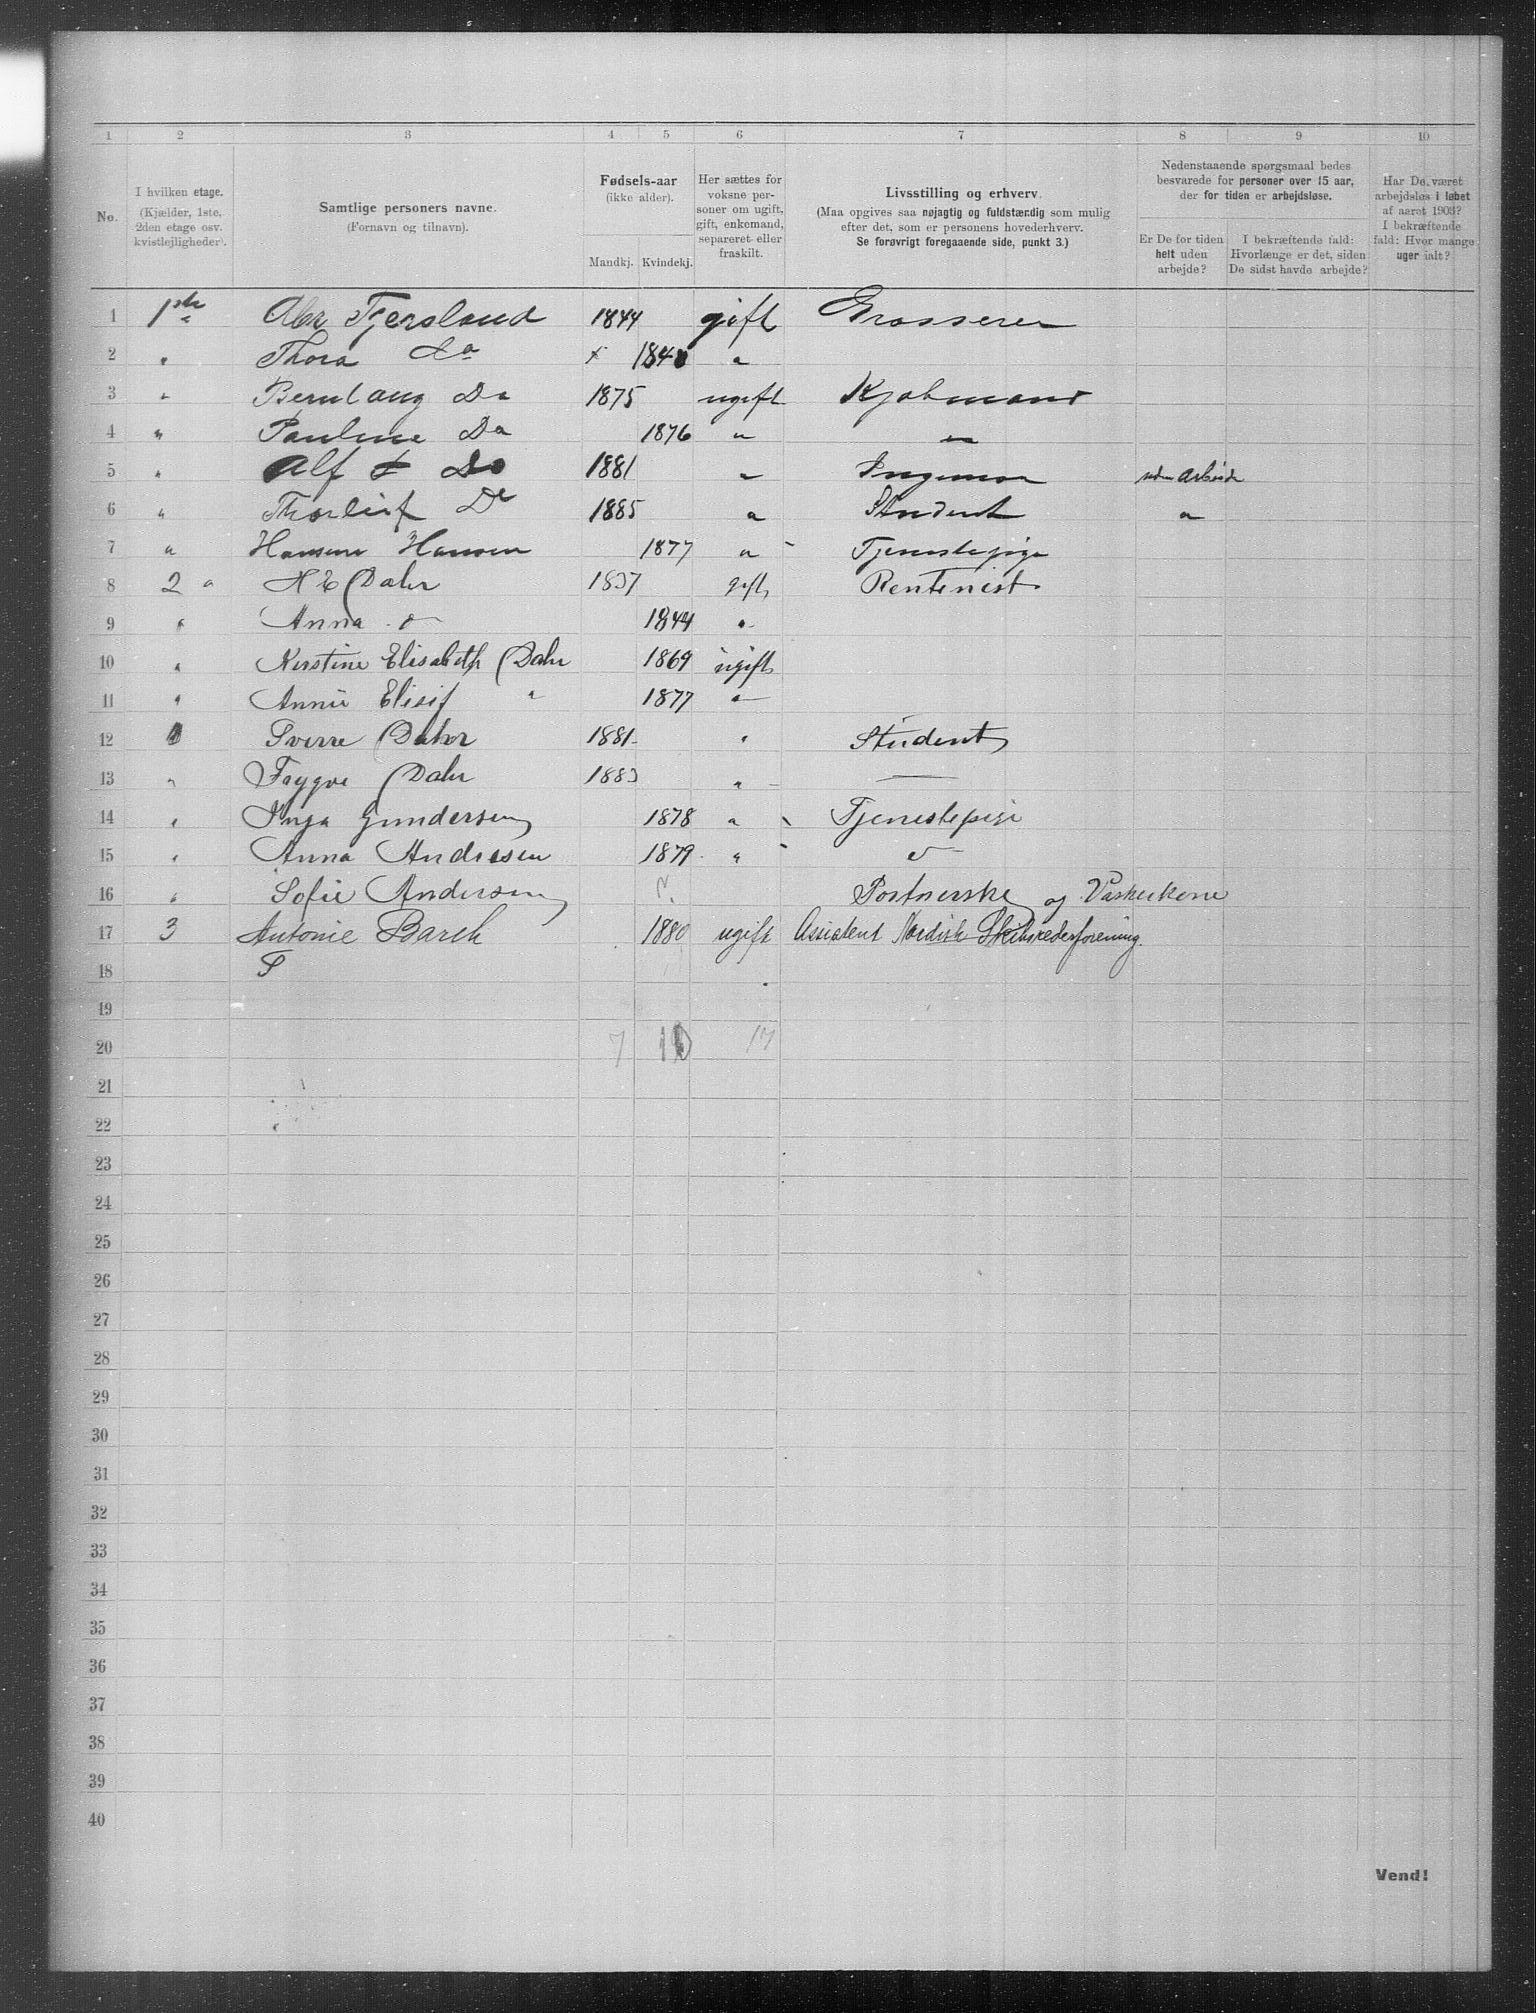 1 2 3 4 5 6 7 8 9 10
No.
I hvilken etage.
(Kjælder, 1ste,
2den etage osv.
kvistlejligheder).
Samtlige personers navne.
(Fornavn og tilnavn).
Fødsels-aar
(ikke alder).
Mandkj. Kvindekj.
Her sættes for
voksne per-
soner om ugift,
gift, enkemand,
separeret eller
fraskilt.
Livsstilling og erhverv.
(Maa opgives saa nøjagtig og fuldstændig som mulig
efter det, som er personens hovederhverv.
Se forøvrigt foregaaende side, punkt 3.)
Nedenstaaende spørgsmaal bedes
besvarede for personer over 15 aar,
der for tiden er arbejdsløse.
Er De for tiden
helt uden
arbejde?
I bekræftende fald:
Hvorlænge er det, siden
De sidst havde arbejde?
Har De været
arbejdsløs i løbet
af aaret 1903?
I bekræftende
fald: Hvor mange
uger ialt?
1 1ste Abr Fjersland 1844 gift Grosserer
2 " Thora do x 184 "
3 " Do 1875 ugift Kjøbmand
4 " Pauline Do 1876 " "
5 " Alf Do 1881 " Ingeniør uden Arbeide
6 " Thorleif Do 1885 " Student "
7 " Hansine Hansen 1877 " Tjenestepige
8 2 " H E Dahr 1837 gift Rentenist
9 " Anna " 1844 "
10 " Kirstine Elisabeth Dahr 1869 ugift
11 " Annie Elisif " 1877 "
12 Sverre Dahr 1881 " Student
13 " Trygve Dahr 1883 " —
14 " Inga Gundersen 1878 " Tjenestepige
15 " Anna Andresen 1879 " "
16 " Sofie Andersen ?. og Vaskekone
17 3 Antonie Barck 1880 ugift Assistent Nordisk Skibsrederforening.
18 S
19
20 7 10 17
21
22
23
24
25
26
27
28
29
30
31
32
33
34
35
36
37
38
39
40
Vend!